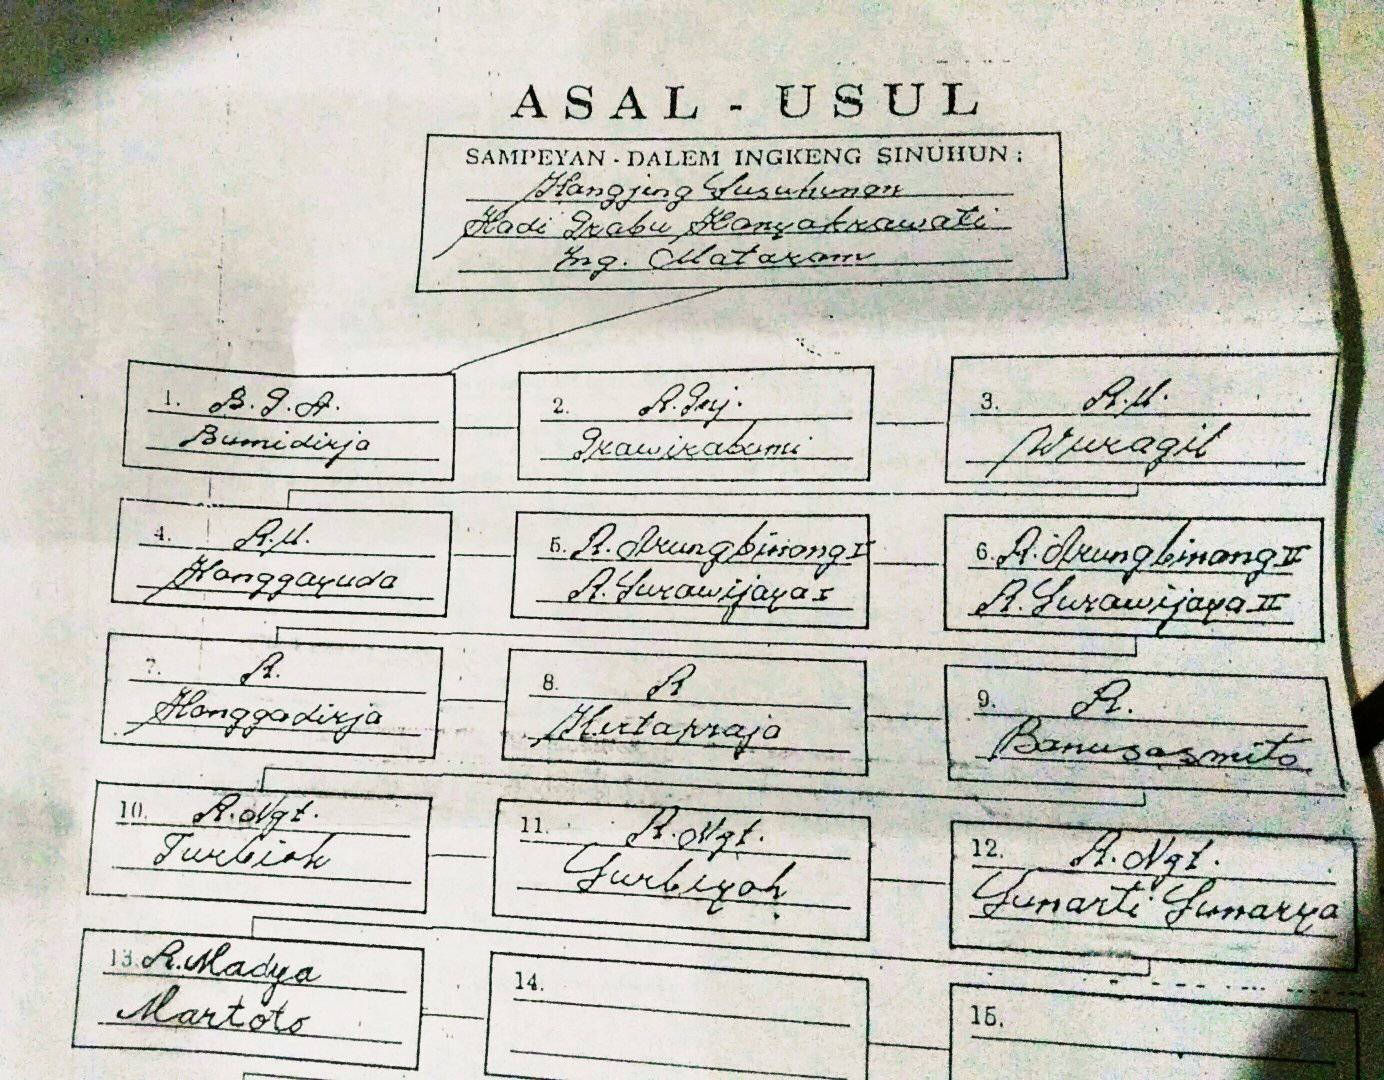 ASAL - USUL
SAMPEYAN - DALEM INGKENG SINUHUN :
Kangjeng Susuhunan
Hadi Prabu Hanyakrawati
Ing. Mataram
1. B. P. A.
Bumidirja
2. R. Pnj.
Prawirabumi
3. R.M.
Wuragil
4. R.M.
Hanggayuda
5. R. Arungbinang I
R. Surawijaya I
6. R. Arungbinang II
R. Surawijaya II
7. R.
Hanggadirja
8. R
Kertapraja
9. R.
Banusasmito
10. R. Ngt.
Turbiah
11. R. Ngt.
Surbiyah
12. R. Ngt.
Sunarti Sunarya
13. R. Madya
Martoto
14.
15.